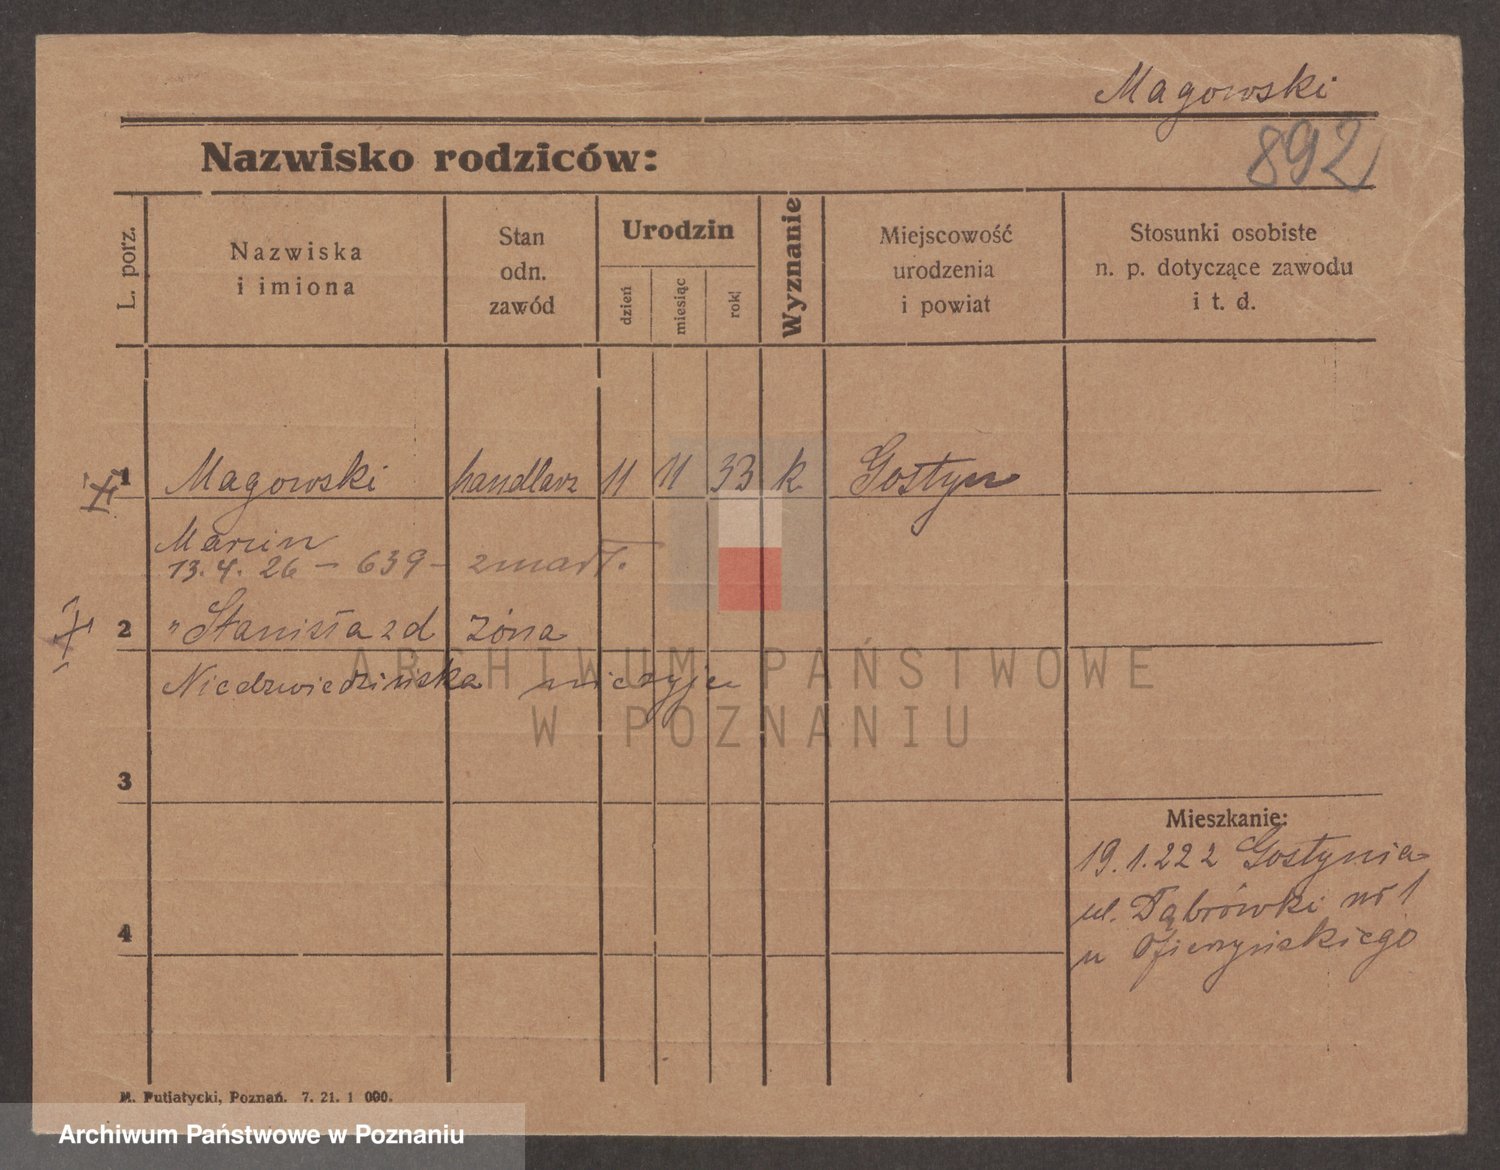 Magowski
892
Nazwisko rodziców:
L. porz.
Nazwiska
i imiona
Stan
odn.
zawód
Urodzin
dzień
miesiąc
rok
Wyznanie
Miejscowość
urodzenia
i powiat
Stosunki osobiste
n. p. dotyczące zawodu
i t. d.
1 Magowski handlarz 11 11 33 k Gostyn
Marcin
13. 4. 26 – 639 – zmarł.
2 " Stanisła zd żona
Niedzwiedzińska nieżyje
ARCHIWUM PAŃSTWOWE
W POZNANIU
3
Mieszkanie:
19.1.222 Gostynia
ul. Dąbrówki nr 1
4
u
M. Putiatycki, Poznań. 7. 21. 1 000.
Archiwum Państwowe w Poznaniu